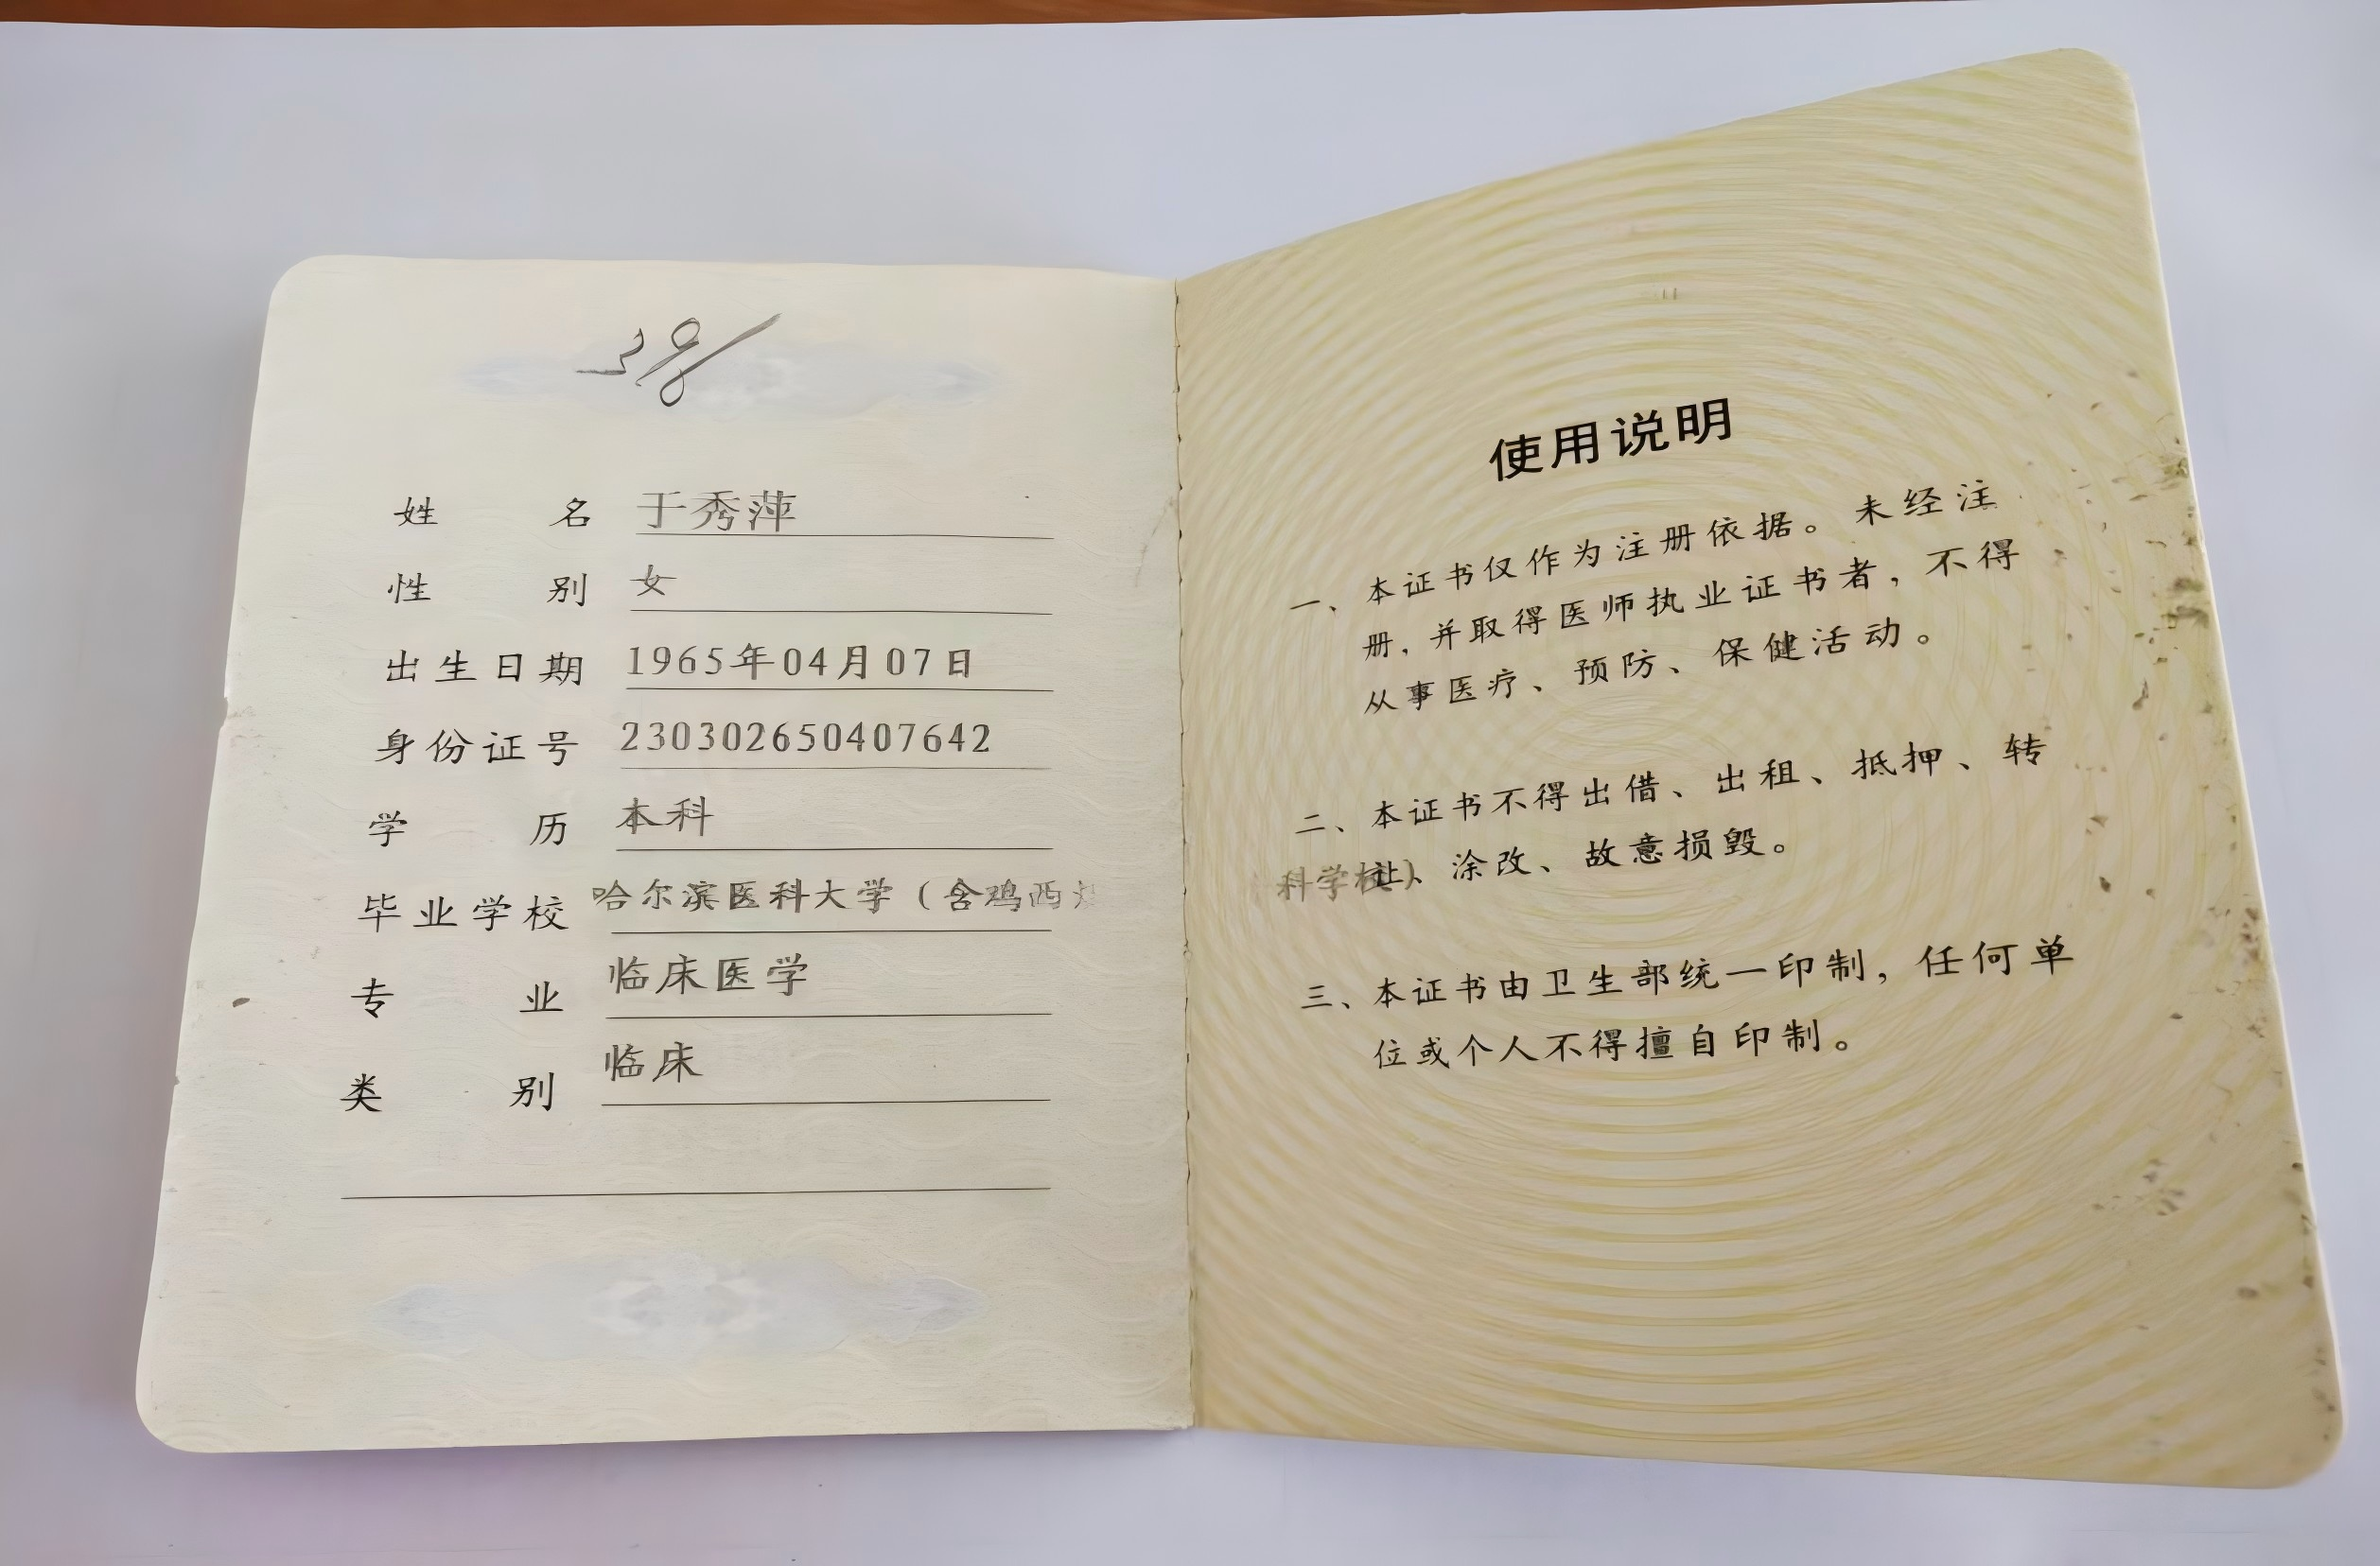 398
姓名 于秀萍
性别 女
出生日期 1965年04月07日
身份证号 230302650407642
学历 本科
毕业学校 哈尔滨医科大学（含鸡西
专业 临床医学
类别 临床
使用说明
一、本证书仅作为注册依据。未经注
册，并取得医师执业证书者，不得
从事医疗、预防、保健活动。
二、本证书不得出借、出租、抵押、转
让、涂改、故意损毁。
科学校）
三、本证书由卫生部统一印制，任何单
位或个人不得擅自印制。